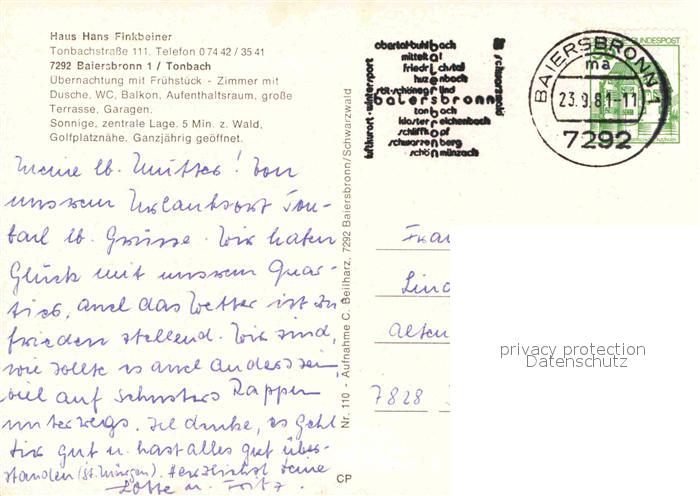 Haus Hans Finkbeiner
Tonbachstraße 111. Telefon 0 74 42 / 35 41
7292 Baiersbronn 1 / Tonbach
Übernachtung mit Frühstück - Zimmer mit
Dusche, WC, Balkon, Aufenthaltsraum, große
Terrasse, Garagen.
Sonnige, zentrale Lage. 5 Min. z. Wald,
Golfplatznähe. Ganzjährig geöffnet.
Meine lb. Mutter! Von
unserem Urlaubsort Ton-
bach lb. Grüsse. Wir haben
Glück mit unserem Quar-
tier, auch das Wetter ist zu
frieden stellend. Wir sind,
wie sollte es auch anders sein
viel auf Schusters Rappen
unterwegs. Ich denke, es geht
Dir gut u. hast alles gut über-
standen (St. Märgen). Herzlichst Deine
Lotte u. Fritz.
Nr. 110 - Aufnahme C. Beilharz, 7292 Baiersbronn/Schwarzwald
CP
luftkurort·wintersport
obertal-buhlbach
mitteltal
friedrichstal
huzenbach
röt-schönegründ
baiersbronn
tonbach
klosterreichenbach
schliffkopf
schwarzenberg
schönmünzach
schwarzwald
BAIERSBRONN 1
ma
23.9.81-11
7292
DEUTSCHE BUNDESPOST
Frau
Lind
Alten
7828
privacy protection
Datenschutz